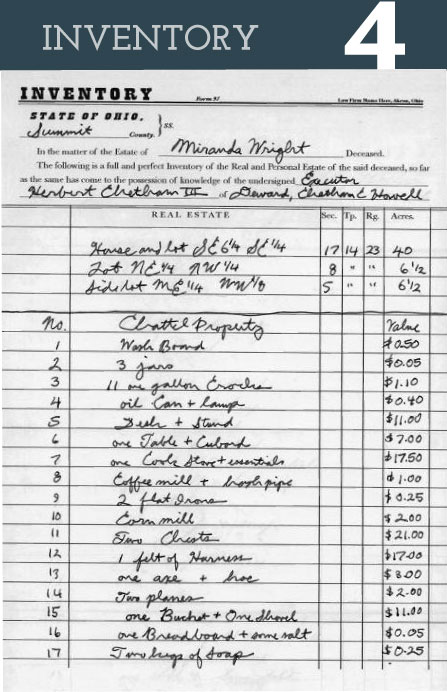 INVENTORY 4
INVENTORY
Form 97
Law Firm Name Here, Akron, Ohio
STATE OF OHIO,
Summit County. } ss.
In the matter of the Estate of Miranda Wright Deceased.
The following is a full and perfect Inventory of the Real and Personal Estate of the said deceased, so far
as the same has come to the possession of knowledge of the undersigned Executor
Herbert Chetham III of Deward, Chetham & Howell
REAL ESTATE Sec. Tp. Rg. Acres.
House and lot SE 6 1/4 SE 1/4 17 14 23 40
Lot NE 1/4 NW 1/4 8 " " 6 1/2
Side lot NW 1/8 5 " " 6 1/2
No. Chattel Property Value
1 Wash Board $0.50
2 3 jars $0.05
3 11 one gallon Crocks $1.10
4 oil Can + lamp $0.40
5 Desk + Stand $11.00
6 one Table + Cubord $7.00
7 one Cook Stove + essentials $17.50
8 Coffee mill + pipe $1.00
9 2 flat Irons $0.25
10 Corn mill $2.00
11 Two Chests $21.00
12 1 felt of Harness $17.00
13 one axe + hoe $8.00
14 Two planes $2.00
15 one Bucket + One Shovel $11.00
16 one Breadboard + some salt $0.05
17 Two kegs of Soap $0.25